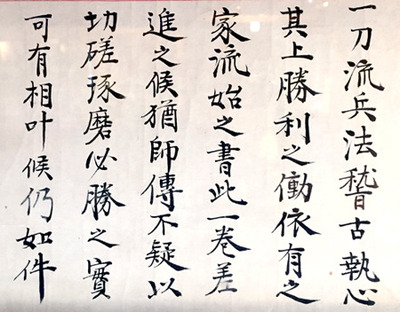 一刀流兵法稽古執心
其上勝利之働依有之
家流始之書此一巻差
進之候猶師傳不疑以
切磋琢磨必勝之實
可有相叶候仍如件